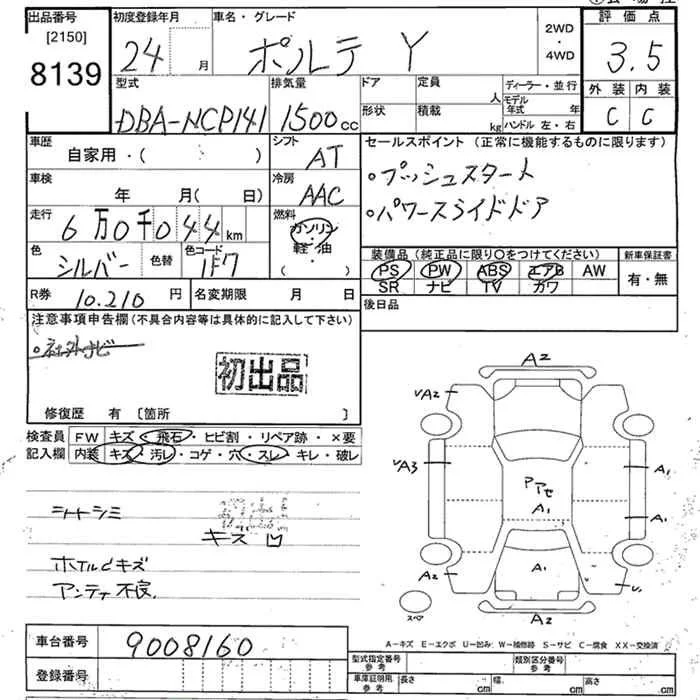 出品番号 初度登録年月 車名・グレード 2WD・4WD 評価点
[2150]
8139 24 月 ポルテ Y 3.5
型式 排気量 ドア 定員 人 ディーラー・並行 外装 内装
DBA-NCP141 1500cc 形状 積載 kg モデル年式 年 ハンドル 左・右 C C
車歴 シフト セールスポイント(正常に機能するものに限ります)
自家用・( ) AT
・プッシュスタート
車検 冷房
年 月( 日) AAC
・パワースライドドア
走行 燃料
6万0千044km ガソリン・軽・油( )
色 色替 色コード
シルバー 1F7
装備品(純正品に限り〇をつけてください) 新車保証書
PS PW ABS エアB AW 有・無
SR ナビ TV カワ
R券 10.210円 名変期限 月 日
後日品
注意事項申告欄(不具合内容等は具体的に記入して下さい)
・社外ナビ
初出品
修復歴 有 [箇所 ]
検査員 FW キズ・飛石・ヒビ割・リペア跡・×要
記入欄 内装 キズ・汚レ・コゲ・穴・スレ・キレ・破レ
シートシミ
キズ 凹
ホイルキズ
アンテナ不良.
A2
VA2
VA3 A1
Pアセ
A1 A1
A1
A2 U1
スペア A2
A-キズ E-エクボ U-凹み W-補修跡 S-サビ C-腐食 XX-交換済
車台番号 9008160
登録番号
型式指定番号 参考 類別区分番号 参考
車庫証明用 参考 長さ cm 幅 cm 高さ cm